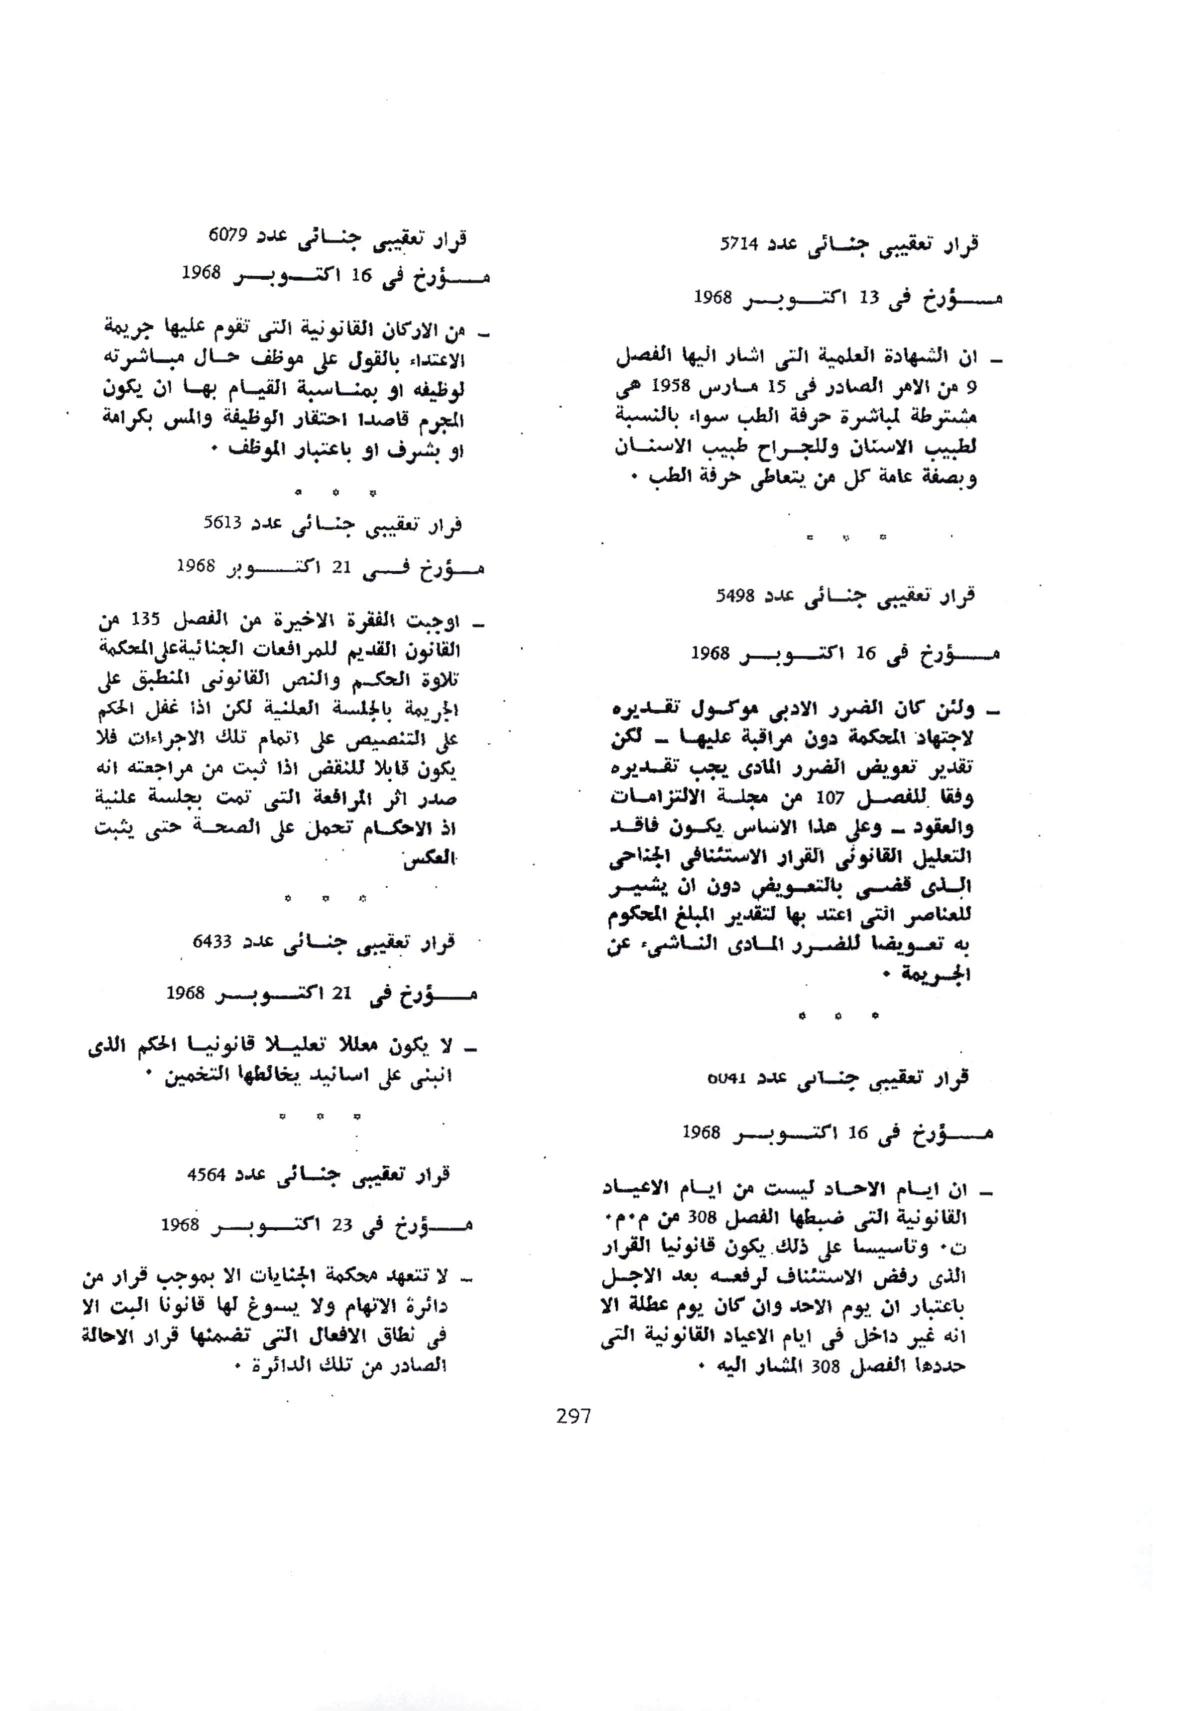 قرار تعقيبى جنائى عدد 5714
مؤرخ فى 13 اكتوبر 1968
ـ ان الشهادة العلمية التى اشار اليها الفصل
9 من الامر الصادر فى 15 مارس 1958 هى
مشترطة لمباشرة حرفة الطب سواء بالنسبة
لطبيب الاسنان وللجراح طبيب الاسنان
وبصفة عامة كل من يتعاطى حرفة الطب ٠
* * *
قرار تعقيبى جنائى عدد 5498
مؤرخ فى 16 اكتوبر 1968
ـ ولئن كان الضرر الادبى موكول تقديره
لاجتهاد المحكمة دون مراقبة عليها ـ لكن
تقدير تعويض الضرر المادى يجب تقديره
وفقا للفصل 107 من مجلة الالتزامات
والعقود ـ وعلى هذا الاساس يكون فاقد
التعليل القانونى القرار الاستئنافى الجناحى
الذى قضى بالتعويض دون ان يشير
للعناصر التى اعتد بها لتقدير المبلغ المحكوم
به تعويضا للضرر المادى الناشىء عن
الجريمة ٠
* * *
قرار تعقيبى جنائى عدد 6041
مؤرخ فى 16 اكتوبر 1968
ـ ان ايام الاحاد ليست من ايام الاعياد
القانونية التى ضبطها الفصل 308 من م٠م٠
ت٠ وتاسيسا على ذلك يكون قانونيا القرار
الذى رفض الاستئناف لرفعه بعد الاجل
باعتبار ان يوم الاحد وان كان يوم عطلة الا
انه غير داخل فى ايام الاعياد القانونية التى
حددها الفصل 308 المشار اليه ٠
قرار تعقيبى جنائى عدد 6079
مؤرخ فى 16 اكتوبر 1968
ـ من الاركان القانونية التى تقوم عليها جريمة
الاعتداء بالقول على موظف حال مباشرته
لوظيفه او بمناسبة القيام بها ان يكون
المجرم قاصدا احتقار الوظيفة والمس بكرامة
او بشرف او باعتبار الموظف ٠
* * *
قرار تعقيبى جنائى عدد 5613
مؤرخ فى 21 اكتوبر 1968
ـ اوجبت الفقرة الاخيرة من الفصل 135 من
القانون القديم للمرافعات الجنائية على المحكمة
تلاوة الحكم والنص القانونى المنطبق على
الجريمة بالجلسة العلنية لكن اذا غفل الحكم
على التنصيص على اتمام تلك الاجراءات فلا
يكون قابلا للنقض اذا ثبت من مراجعته انه
صدر اثر المرافعة التى تمت بجلسة علنية
اذ الاحكام تحمل على الصحة حتى يثبت
العكس
* * *
قرار تعقيبى جنائى عدد 6433
مؤرخ فى 21 اكتوبر 1968
ـ لا يكون معللا تعليلا قانونيا الحكم الذى
انبنى على اسانيد يخالطها التخمين ٠
* * *
قرار تعقيبى جنائى عدد 4564
مؤرخ فى 23 اكتوبر 1968
ـ لا تتعهد محكمة الجنايات الا بموجب قرار من
دائرة الاتهام ولا يسوغ لها قانونا البت الا
فى نطاق الافعال التى تضمنها قرار الاحالة
الصادر من تلك الدائرة ٠
297